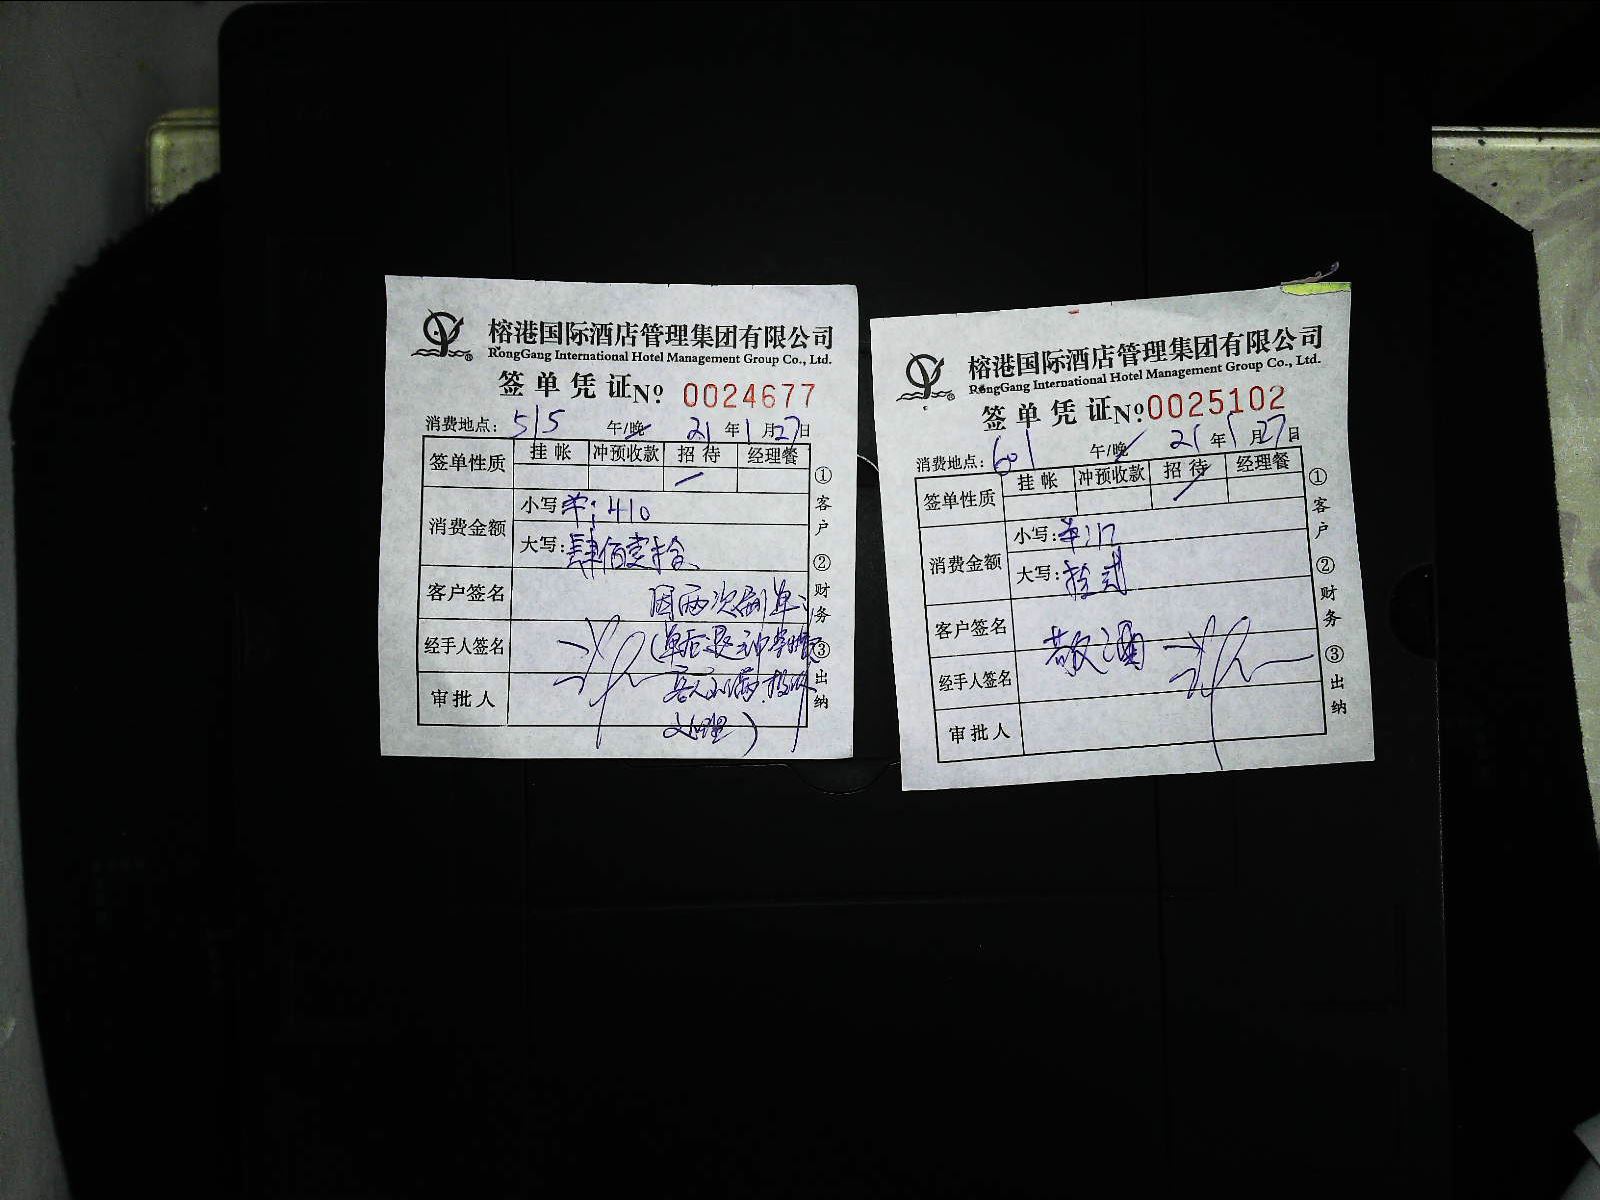 榕港国际酒店管理集团有限公司
RongGang International Hotel Management Group Co., Ltd.
签单凭证 No 0024677
消费地点：515 午/晚 21年1月27日
签单性质 挂帐 冲预收款 招待 经理餐
消费金额 小写 ¥：410
大写：肆佰壹拾
客户签名 因两次刷单
经手人签名
审批人
① 客户 ② 财务 ③ 出纳
榕港国际酒店管理集团有限公司
RongGang International Hotel Management Group Co., Ltd.
签单凭证 No 0025102
消费地点：601 午/晚 21年1月27日
签单性质 挂帐 冲预收款 招待 经理餐
消费金额 小写：¥：12
大写：拾贰
客户签名
敬酒
经手人签名
审批人
① 客户 ② 财务 ③ 出纳